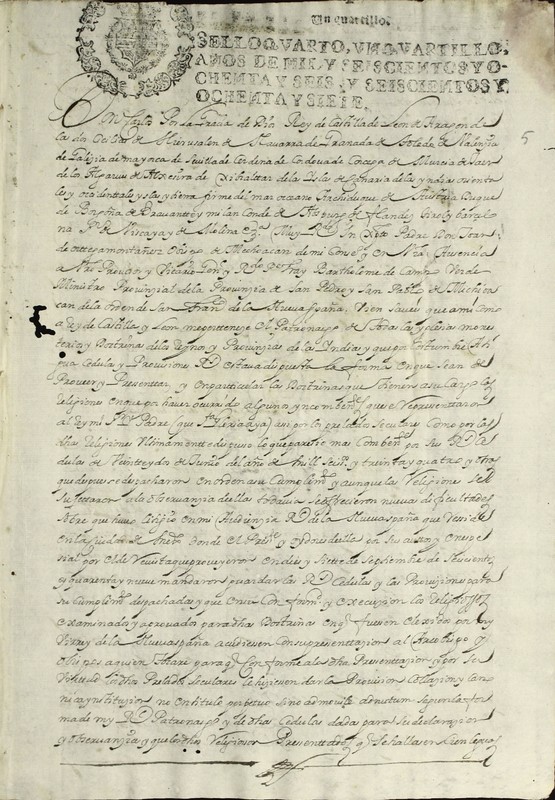 Un quartillo.
SELLO QVARTO, VN QVARTILLO,
AÑOS DE MIL Y SEISCIENTOS Y O-
CHENTA Y SEIS, Y SEISCIENTOS Y
OCHENTA Y SIETE.
5
Por la Gracia de Dios Rey de Castilla de Leon de Aragon de
las dos Cecilias de Hierusalen de Navarra de Granada de Toledo de Valençia
de Galizia de Mayorca de Sevilla de Cerdena de Cordova de Corcega de Murcia de Jaen
de los Algarves de Algecira de Gibraltar de las Islas de Canaria de las yndias orienta
les y ocidentales yslas y tierra firme del mar oceano Archiduque de Austria Duque
de Borgoña de Bravante y milan Conde de Abspurg de Flandes tirol y barçelo
na Sr. de Viscaya y de Molina &a. Muy Rdo. In Cristo Padre Don Juan
de ortega montañez Obispo de Mechoacan de mi Consejo y en Vra. Ausencia
a Vro. Provisor y Vicario Fray Bartholome de
Ministro Provincial de la Provinzia de San Pedro y San Pablo de Mechoa
can de la orden de San Franco. de la Nueva España, Vien saveis que a mi como
a Rey de Castilla y Leon me pertenese el Patronasgo de todas las yglesias mones
terios y Doctrinas de los Reynos y Provinzias de las Yndias y que por costumbre
Cedulas y Provisiones Rs. estava dispuesta la forma en que se an de
Proveer y Presentar, y en particular las Doctrinas que tienen a su cargo los
religiosos en que por haver ocurrido algunos yncombenes. que se representaron
al Rey mi Sr. y Padre (que Sta. Gloria aya) asi por los prelados seculares como por las
dhas Religiones Ultimamente dispuso lo que parecio mas combente. por sus Rs. Ce
dulas de Veinte y dos de Junio del año de mill Seiss. y treinta y quatro y otras
que despues se despacharon en orden a su Cumplimto. y aunque las Religiones se
sujetaron a la observanzia de ellas todavia se ofrecieron nuevas dificultades
sobre que huvo litigio en mi Audienzia Rl. de la Nueva españa que reside
en la ciudad de Mexco. donde el Presidte. y oydores de ella en sus autos y en espe
sial por el de Revista que proveyeron en dies y siette de septiembre de
y quarenta y nueve mandaron guardar las Rs. Cedulas y las Provisiones para
su Cumplimto. despachadas y que en su Conformd. y execusion los religiosos
examinados y aprovados para dhas Doctrinas fuesen electos por mi
Virrey de la Nueva españa acudiesen con su presentasion al Arçobispo y
Obispos a quien tocare para q conforme a la dha Presentasion
Prelados seculares le hisiesen dar la Provision Colasion y cano
nica ynstitusion no en titulo perpetuo sino ad movile ad nutum segun la for
ma de my Rl. Patronasgo y de dhas Cedulas dadas para su declarasion
y observanzia y que los dhos Religiosos Presenttados q se hallasen